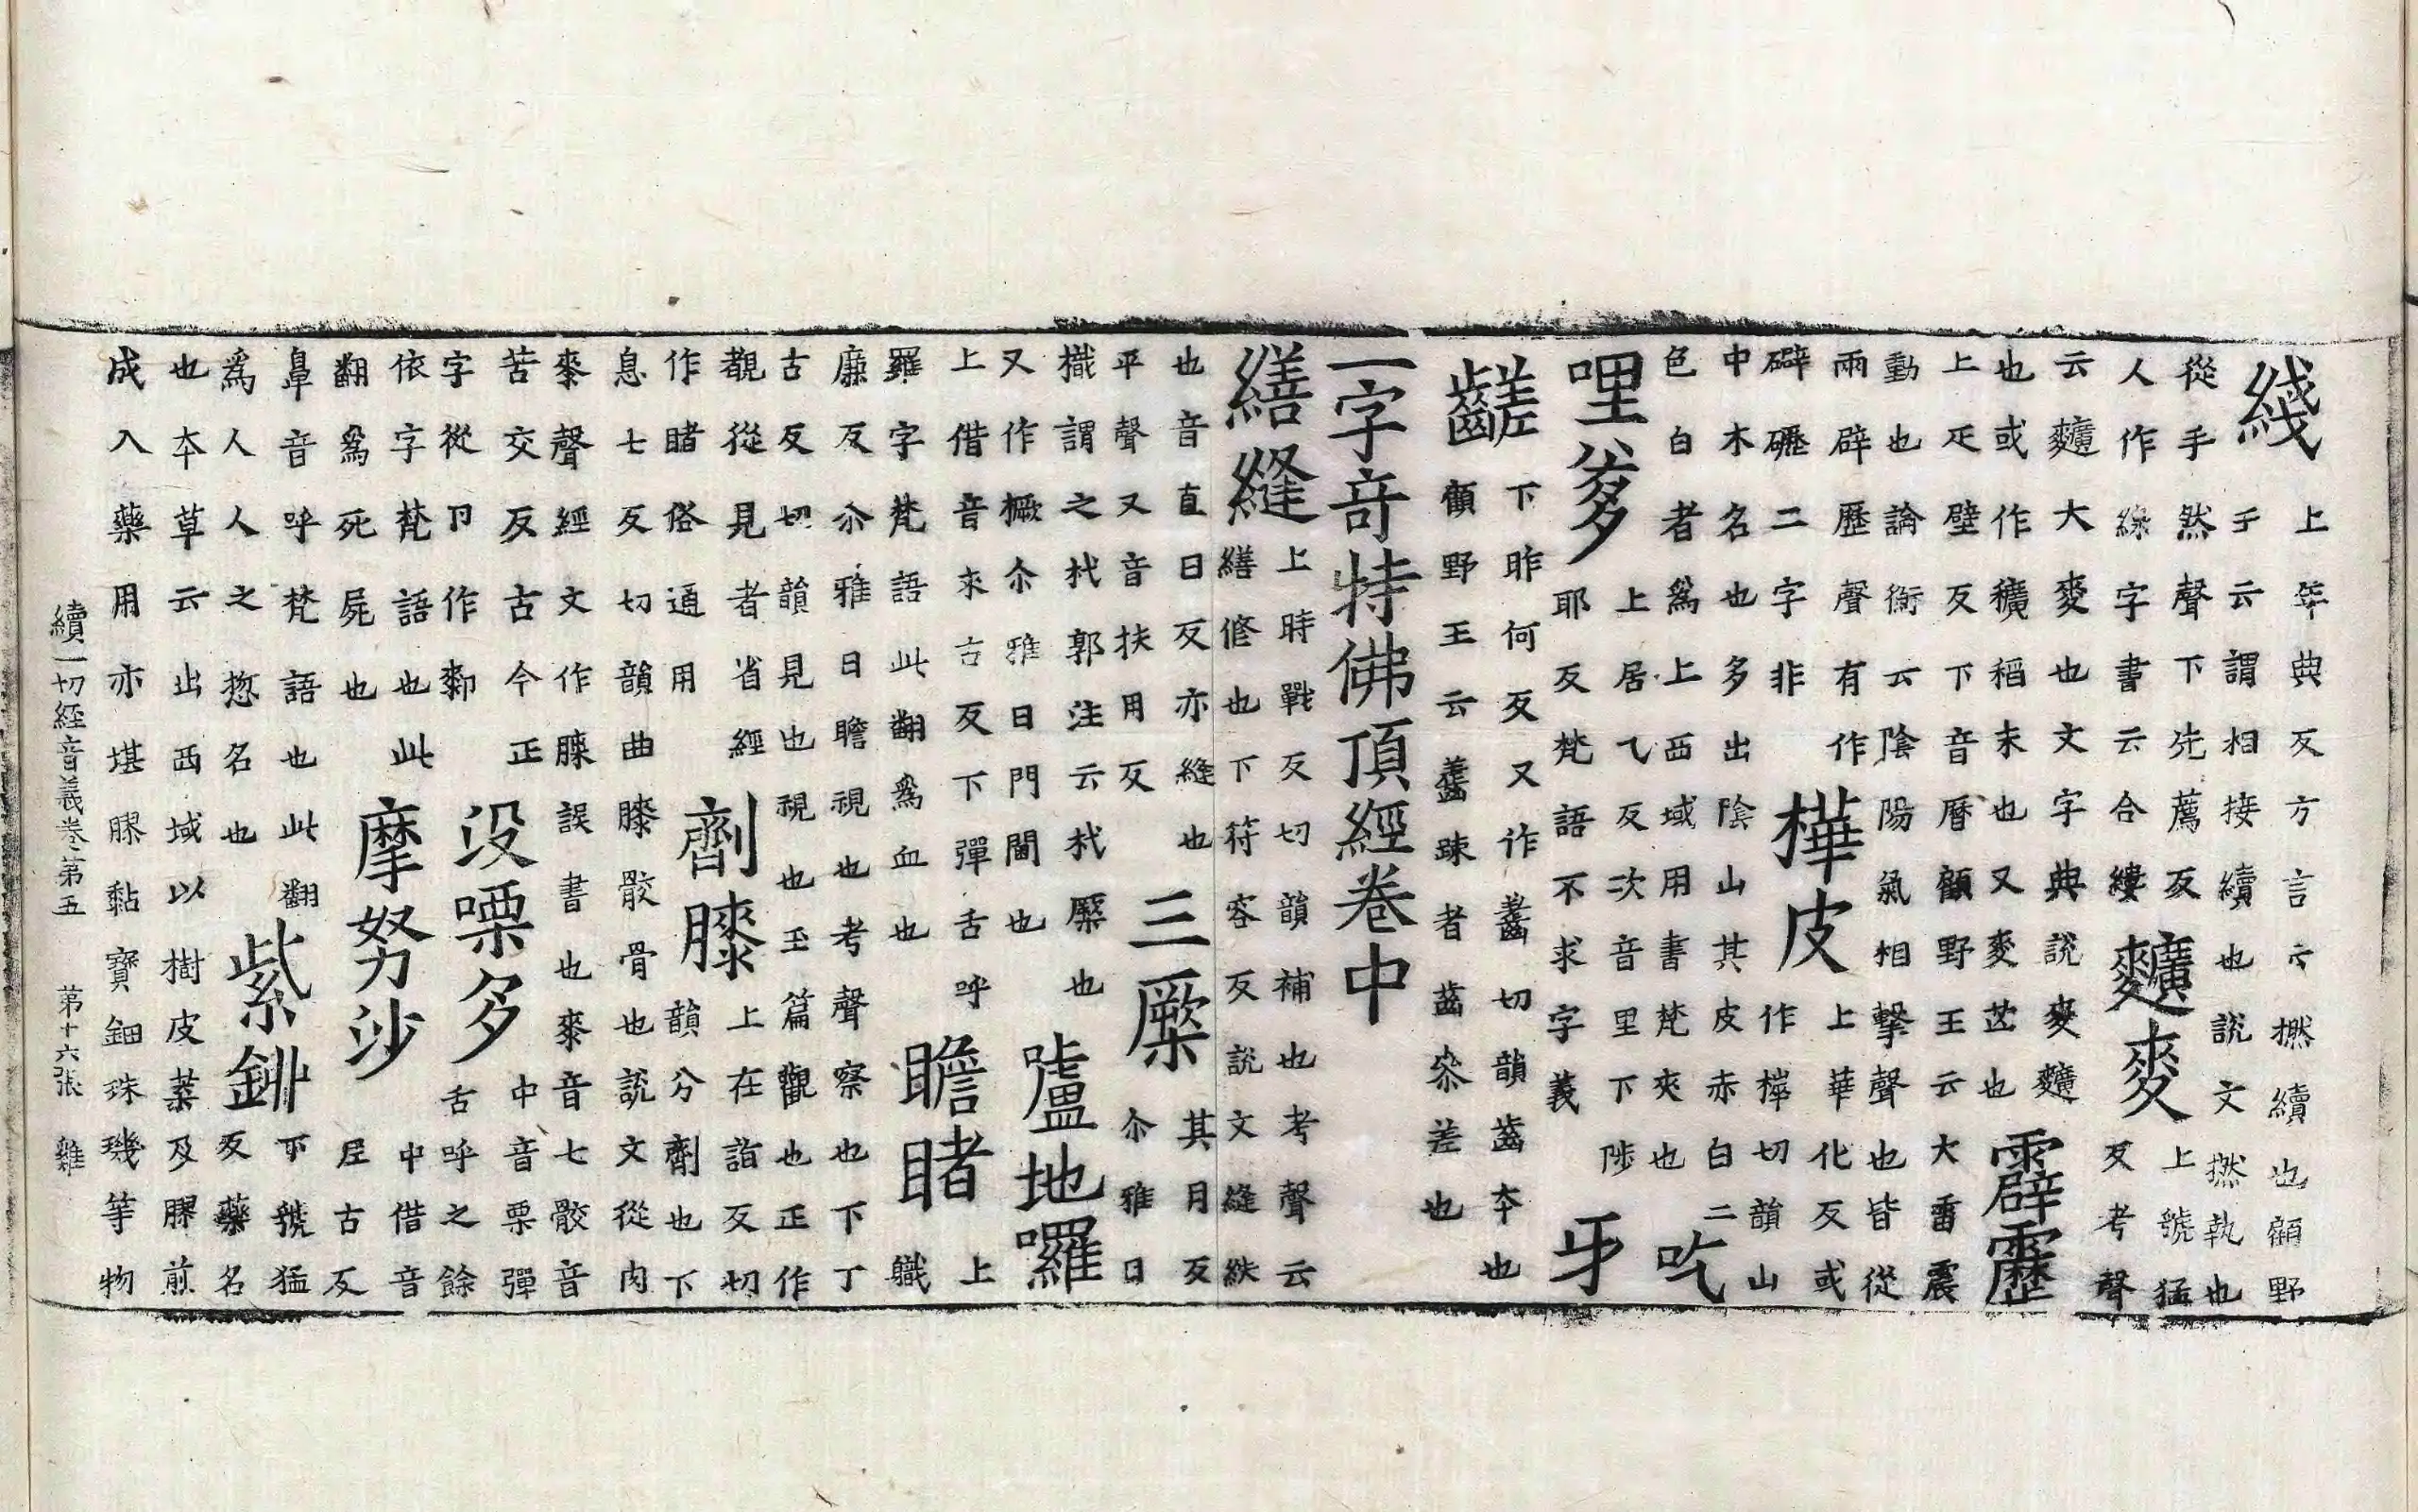 綫
上年典反方言云撚續也顧野
王云謂相接續也說文撚執也
從手然聲下先薦反
人作線字書云合縷
䵃麥
上號猛
反考聲
云䵃大麥也文字典說麥䵃
也或作穬稻未也又麥芒也
霹靂
上疋壁反下音曆顧野王云大雷震
動也論衡云陰陽氣相擊聲也皆從
雨辟歷聲有作
礔礰二字非
樺皮
上華化反或
作㯉切韻山
中木名也多出陰山其皮赤白二
色白者爲上西域用書梵夾也
吃
哩爹
上居乁反次音里下陟
耶反梵語不求字義
牙
齹
下昨何反又作䶥切韻齒本也
顧野王云䶥疎者齒參差也
一字奇特佛頂經卷中
繕縫
上時戰反切韻補也考聲云
繕修也下符容反說文縫紩
也音直日反亦縫也
平聲又音扶用反
三橜
其月反
尒雅曰
樴謂之杙郭注云杙橜也
又作橛尒雅曰門閫也
嚧地囉
上借音來古反下彈舌呼
羅字梵語此翻爲血也
瞻睹
上職
廉反尒雅曰瞻視也考聲察也下丁
古反切韻見也視也玉篇觀也正作
覩從見者省經
作睹俗通用
劑膝
上在詣反切
韻分劑也下
息七反切韻曲膝骹骨也說文從肉
桼聲經文作䐛誤書也桼音七骹音
苦交反古今正
字從卩作厀
没㗚多
中音栗彈
舌呼之餘
依字梵語也此
翻爲死屍也
摩努沙
中借音
尼古反
鼻音呼梵語也此翻
爲人人之惣名也
紫鉚
下號猛
反藥名
也本草云出西域以樹皮葉及膠煎
成入藥用亦堪膠黏寶鈿珠璣等物
續一切經音義卷第五 第十六張 雞